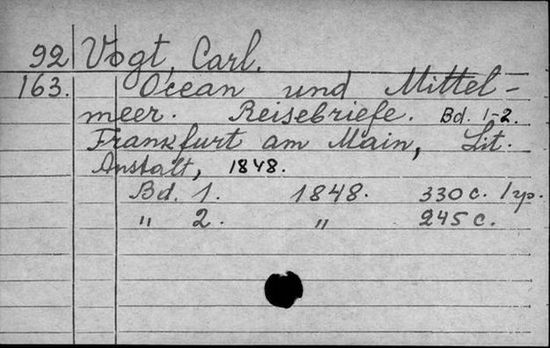 92 Vogt, Carl.
163. Ocean und Mittel-
meer. Reisebriefe. Bd. 1-2.
Frankfurt am Main, Lit.
Anstalt, 1848.
Bd. 1. 1848. 330 c. 1 yp.
" 2. " 245 c.